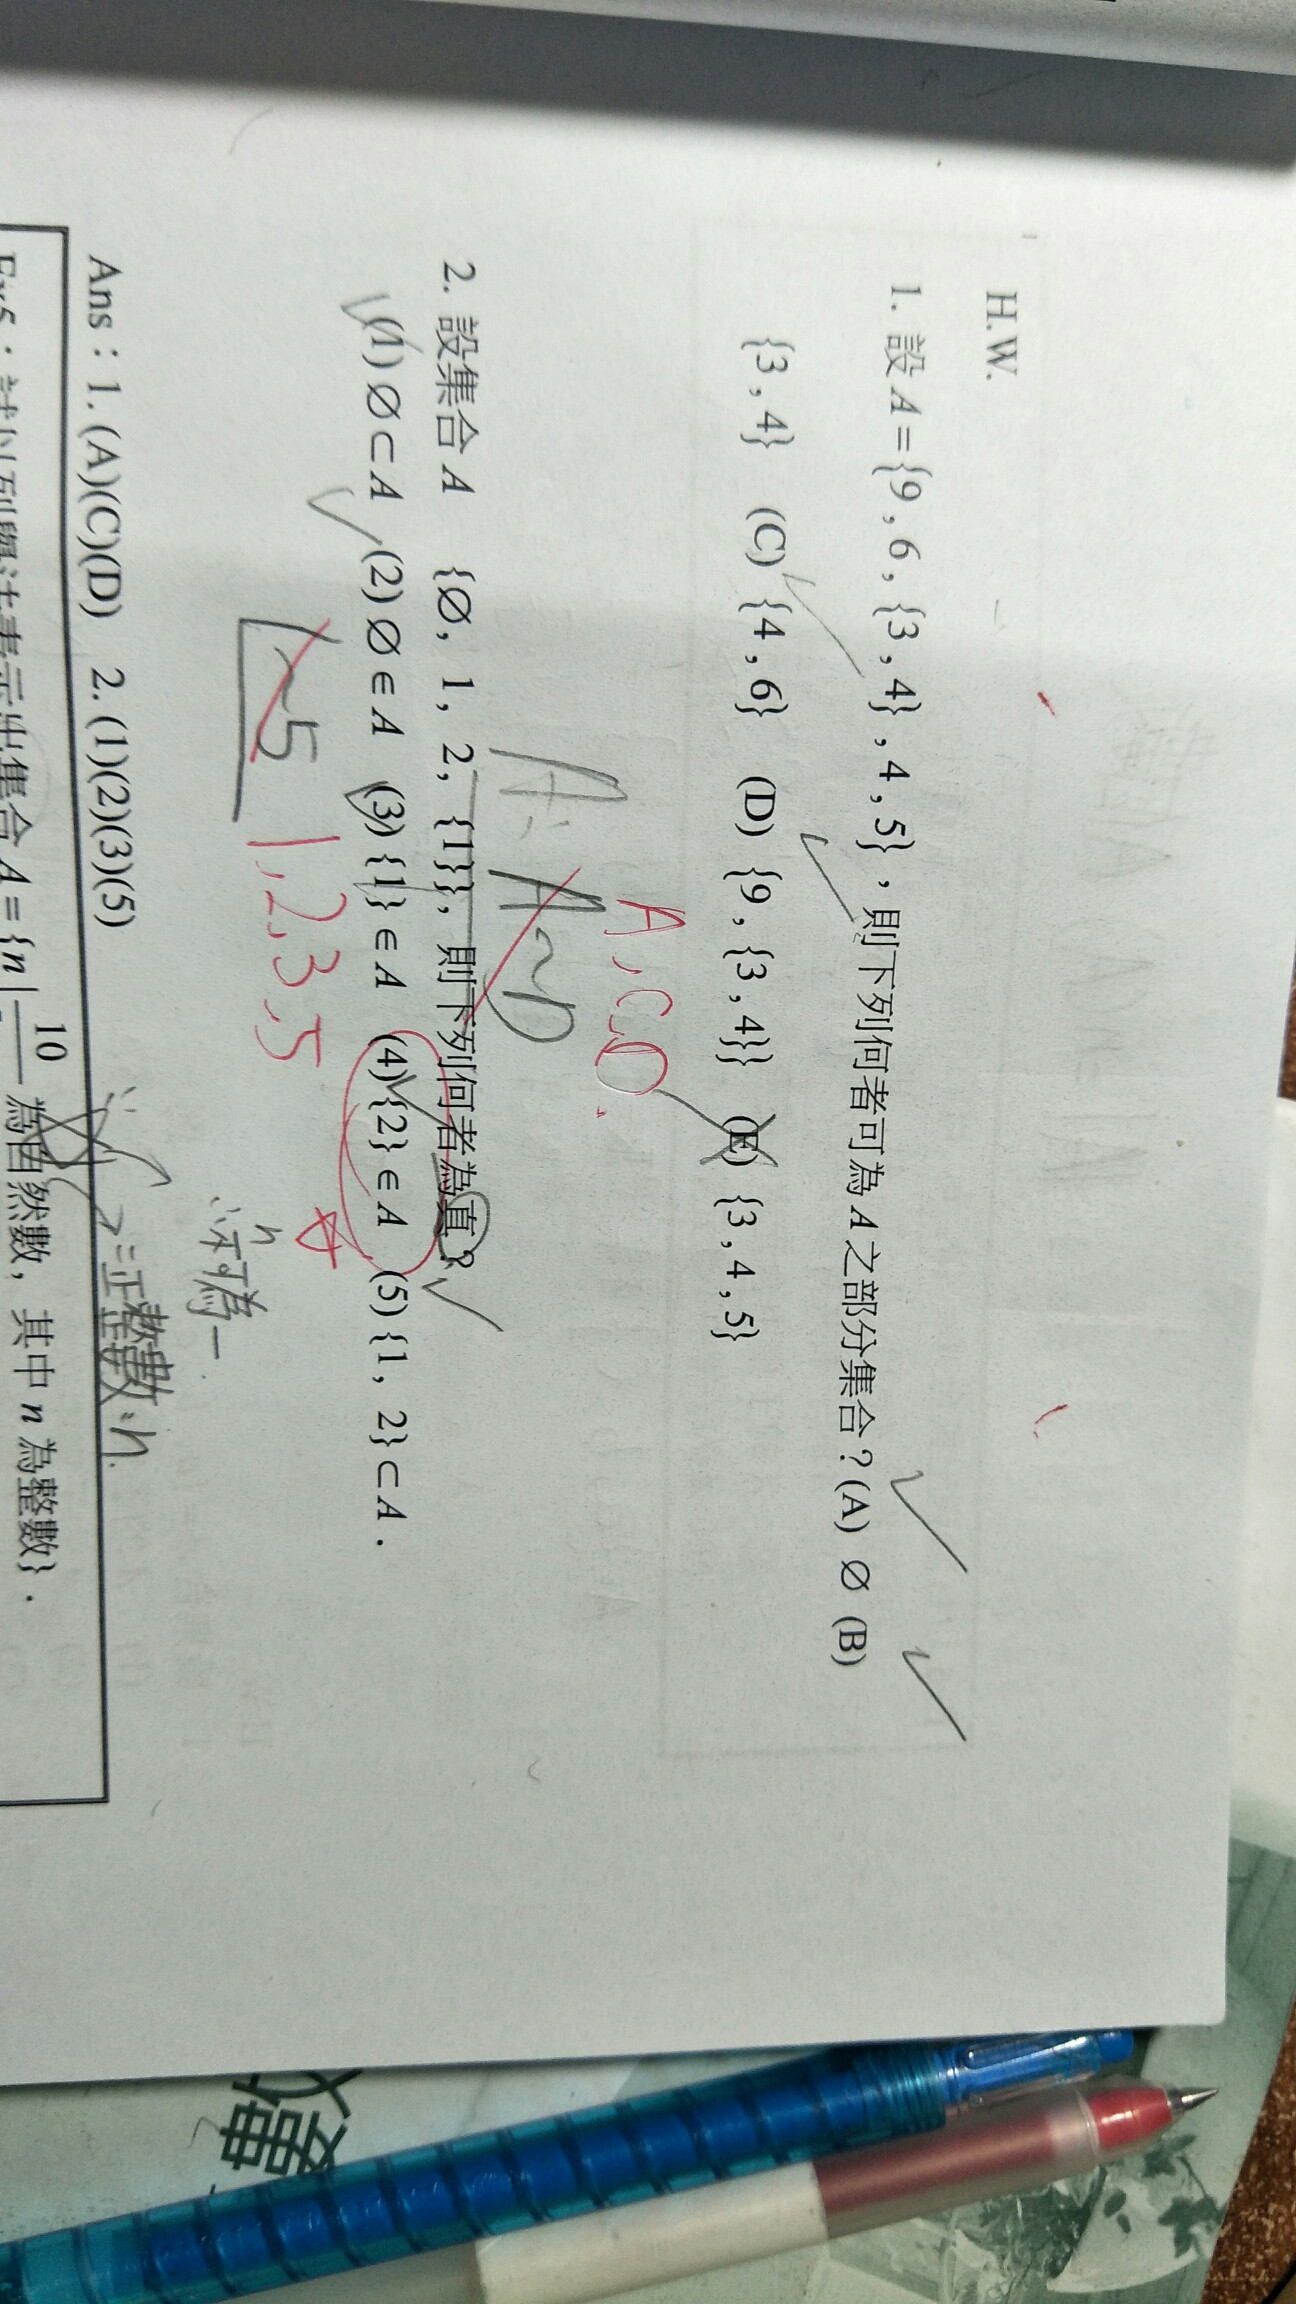 H.W.
1. 設 A = {9 , 6 , {3 , 4} , 4 , 5} , 則下列何者可為 A 之部分集合？(A) Ø (B)
{3 , 4} (C) {4 , 6} (D) {9 , {3 , 4}} (E) {3 , 4 , 5}
A, C, D.
A: A~D
2. 設集合 A {Ø, 1, 2, {1}}, 則下列何者為真？
(1) Ø ⊂ A (2) Ø ∈ A (3) {1} ∈ A (4) {2} ∈ A (5) {1, 2} ⊂ A .
1~5 1,2,3,5
Ans : 1. (A)(C)(D) 2. (1)(2)(3)(5)
正整數
Ex5 : 試以列舉法表示出集合 A = {n | 10 為自然數, 其中 n 為整數} .